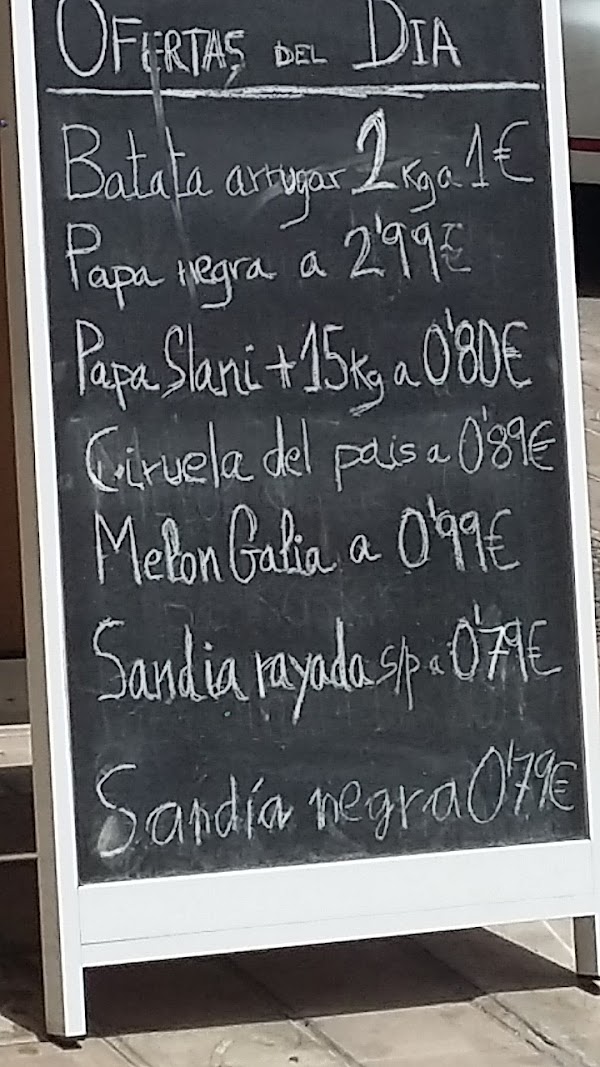 OFERTAS DEL DIA
Batata arrugar 2 Kg a 1€
Papa negra a 2'99€
Papa Slani + 15Kg a 0'80€
Ciruela del pais a 0'89€
Melon Galia a 0'99€
Sandia rayada s/p a 0'79€
Sandía negra 0'79€